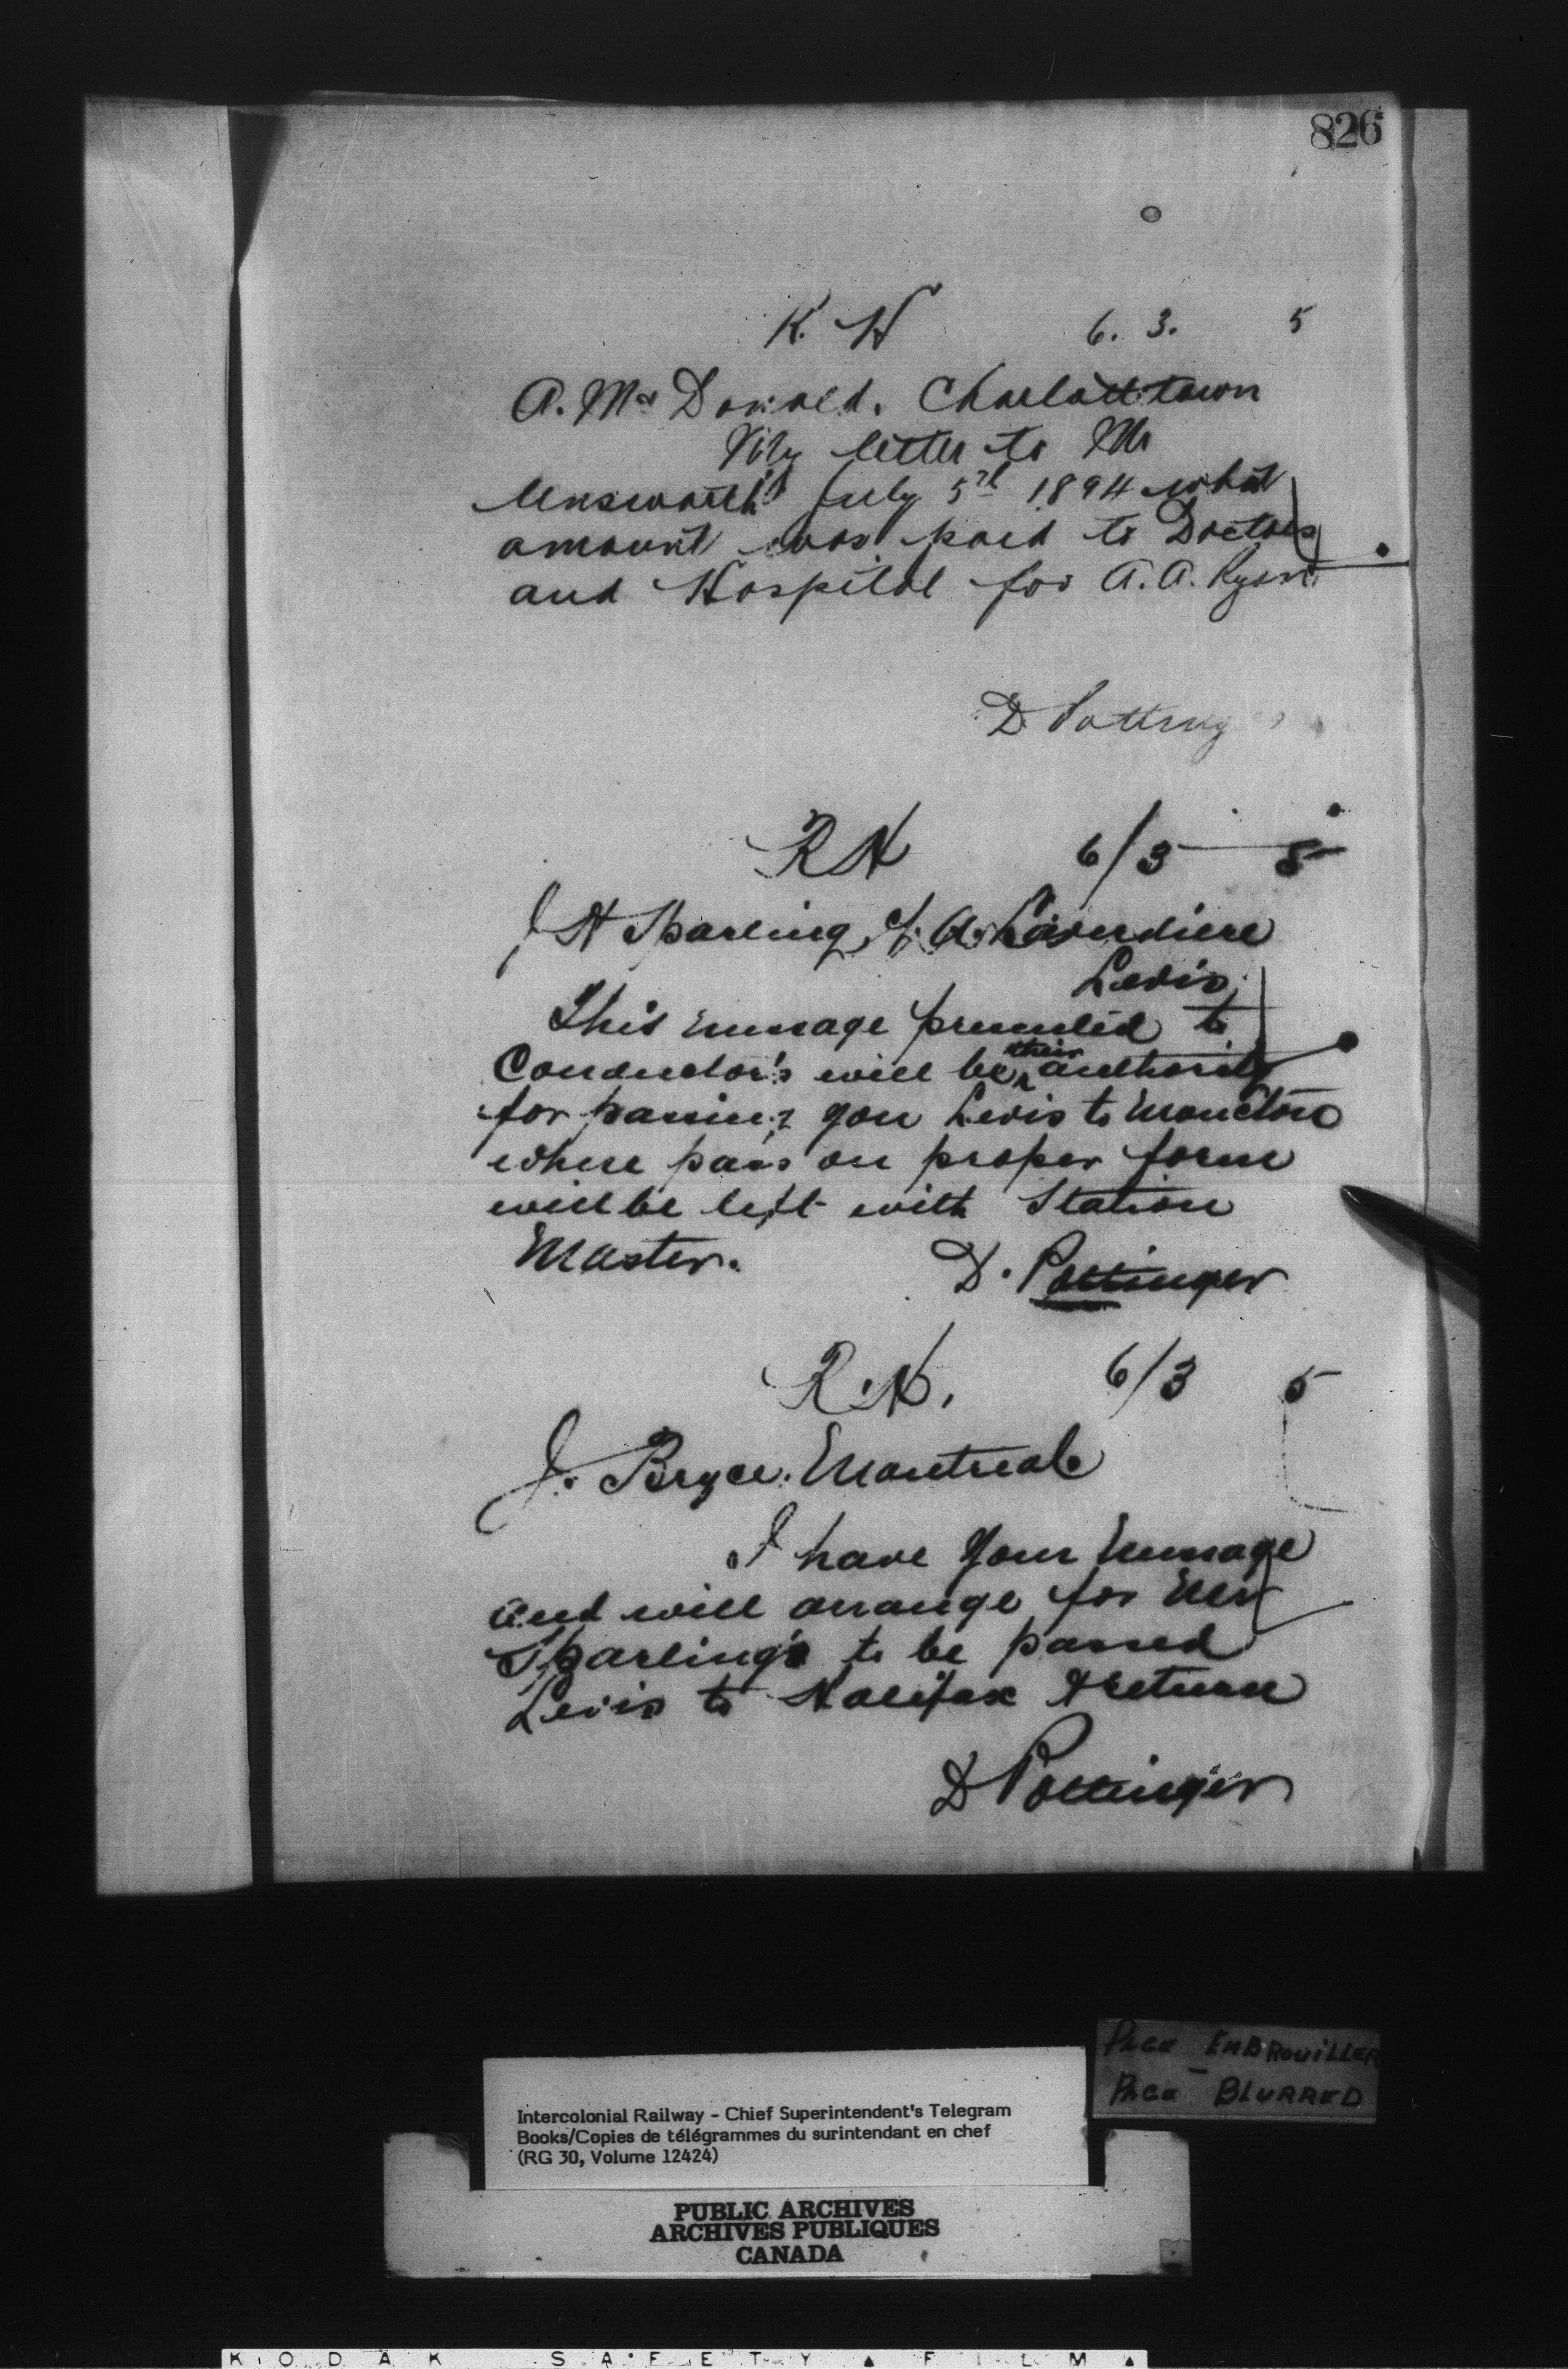 826
K. H 6. 3. 5
A. McDonald. Charlottetown
My letter to Mr
Unsworth July 5th 1894 what
amount was paid to Doctors
and Hospital for A. A. Ryan.
D. Potting
RN 6/3 5
J H Sparling, A. Laverdiere
Levis.
This message presented to
Conductor's will be their authority
for passing you Levis to Moncton
where pass on proper form
will be left with Station
Master. D. Pottinger
R.N. 6/3 5
J. Bryce. Montreal
I have your message
and will arrange for Mr
Sparling's to be passed
Levis to Halifax & return
D Pottinger
PAGE EMBROUILLER
PAGE BLURRED
Intercolonial Railway - Chief Superintendent's Telegram
Books/Copies de télégrammes du surintendant en chef
(RG 30, Volume 12424)
PUBLIC ARCHIVES
ARCHIVES PUBLIQUES
CANADA
KODAK SAFETY ▲ FILM ▲